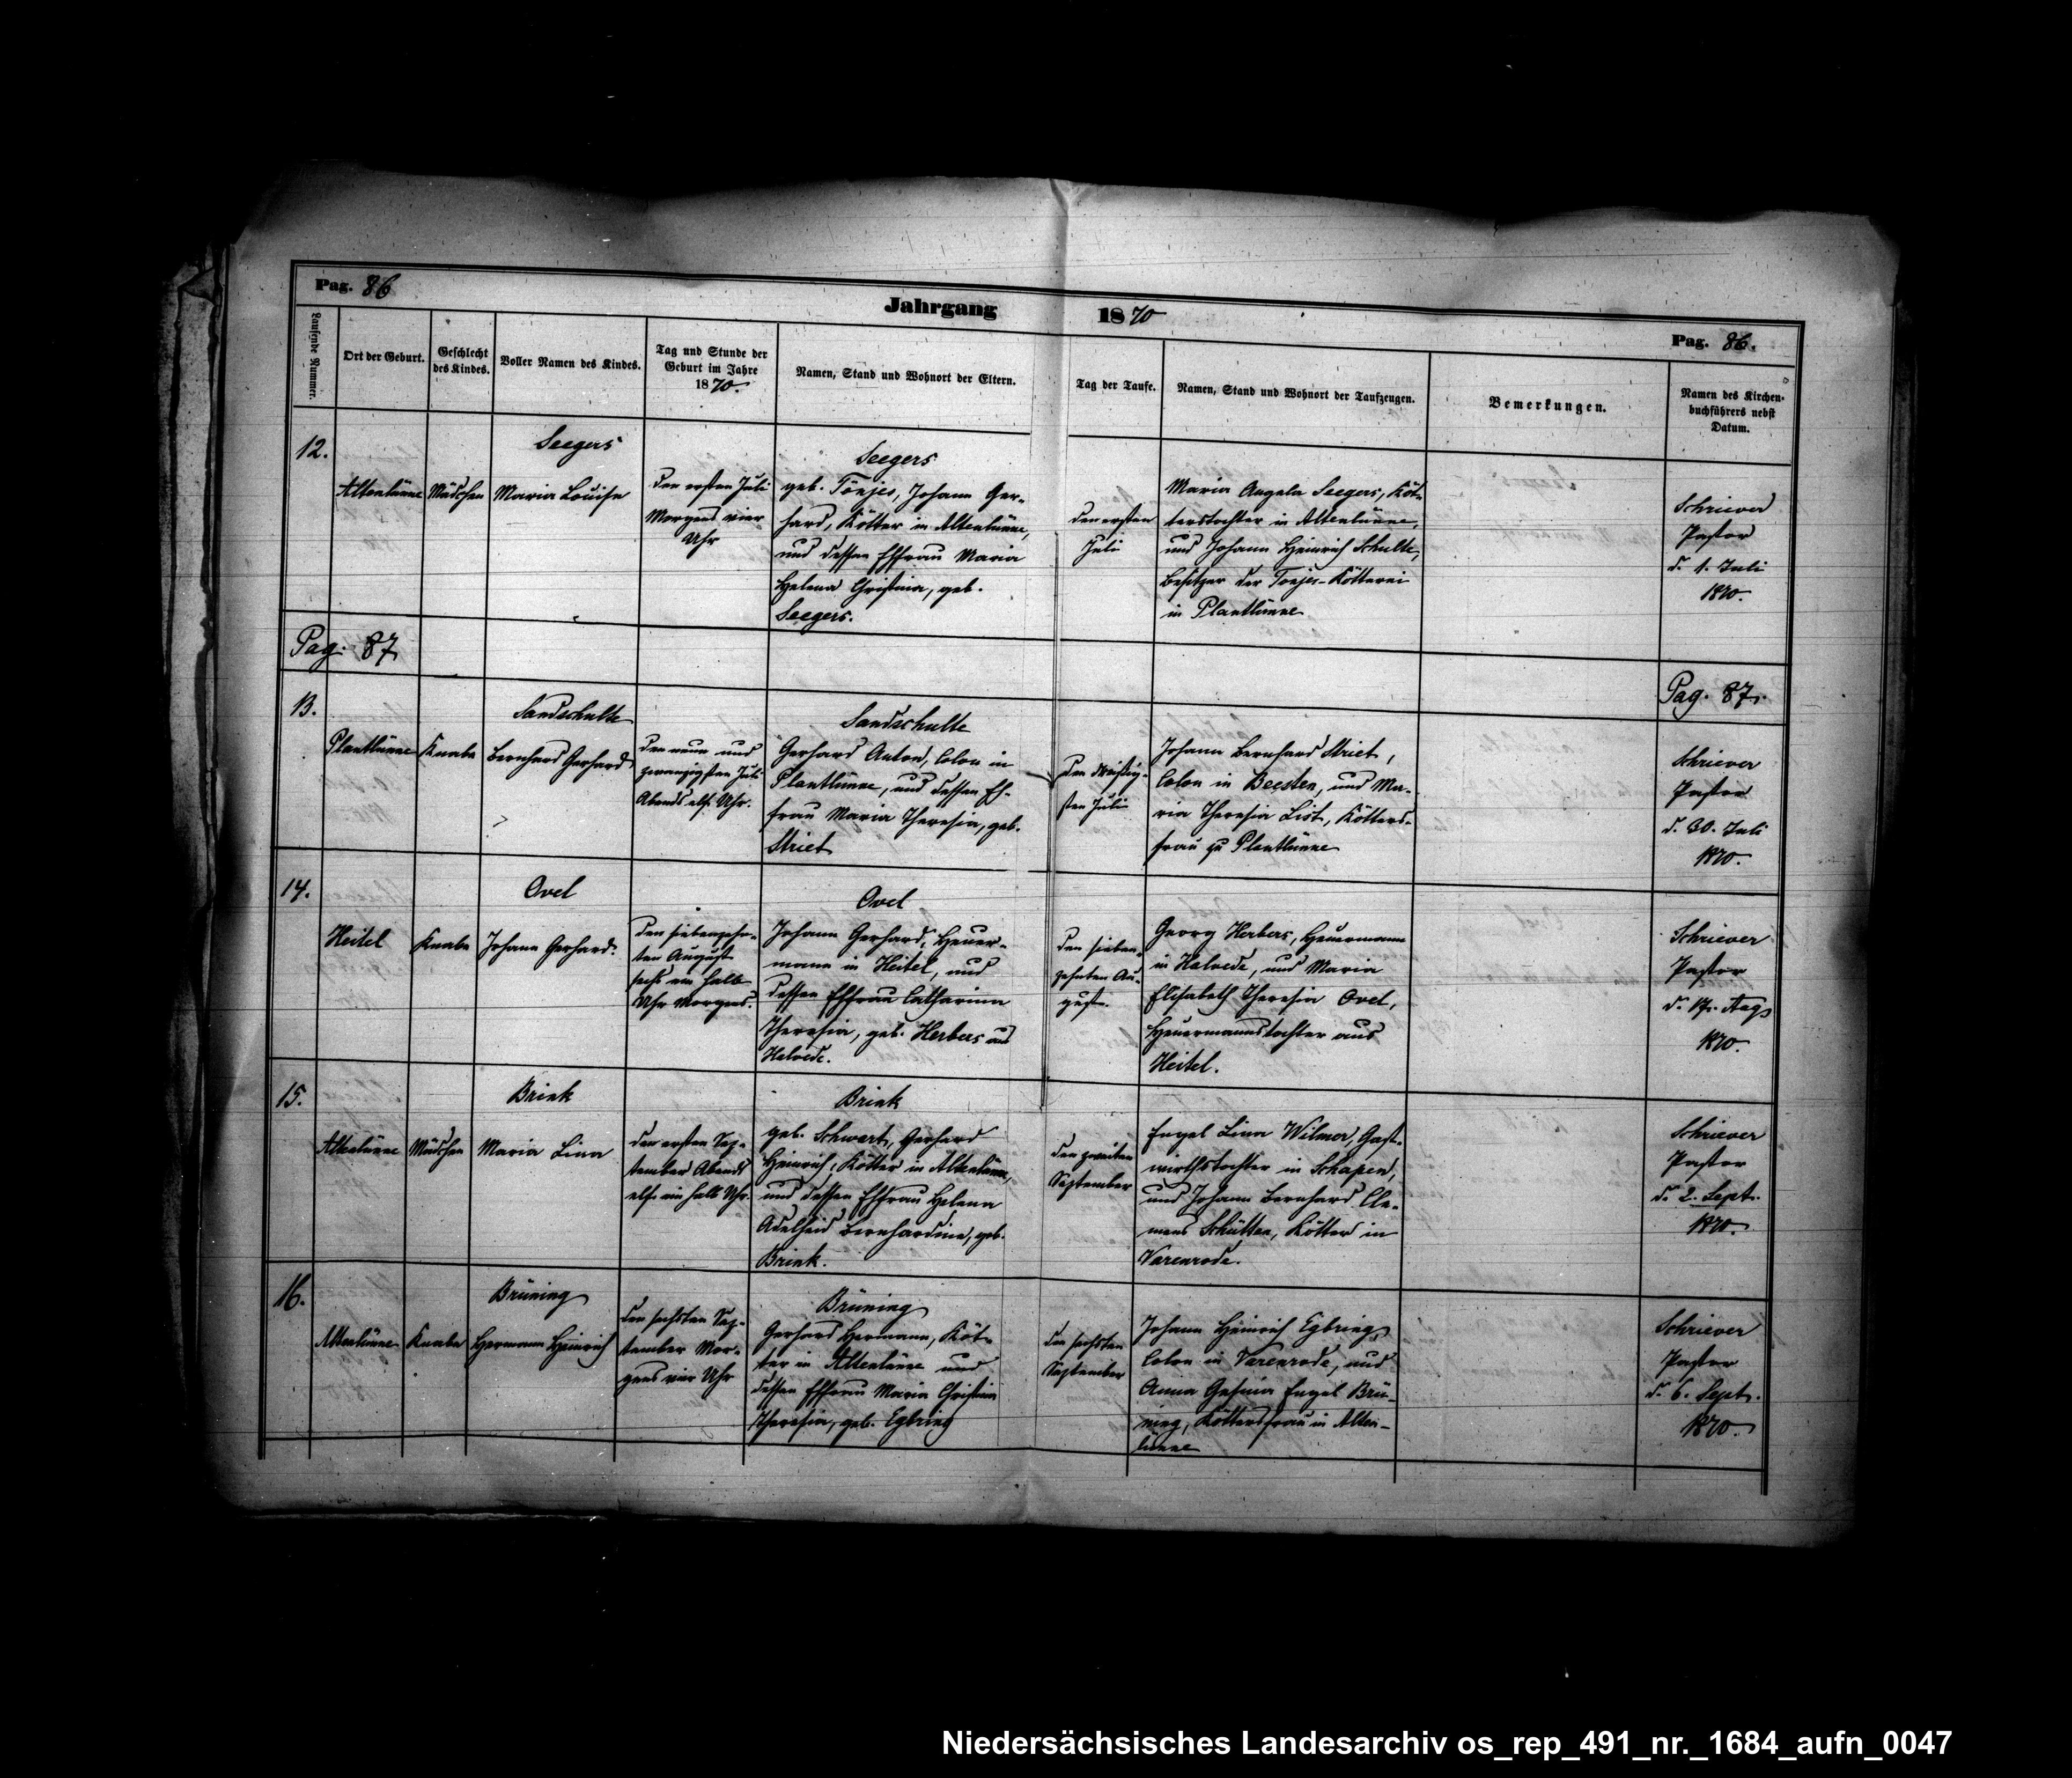 Pag. 86
Jahrgang 1870
Pag. 86.
Laufende Nummer.
Ort der Geburt.
Geschlecht
des Kindes.
Voller Namen des Kindes.
Tag und Stunde der
Geburt im Jahre
1870.
Namen, Stand und Wohnort der Eltern.
Tag der Taufe.
Namen, Stand und Wohnort der Taufzeugen.
Bemerkungen.
Namen des Kirchen-
buchführers nebst
Datum.
12.
Altenlünne
Mädchen
Seegers
Maria Louise
Den ersten Juli
Morgens vier
Uhr
Seegers
geb. Tönjes, Johann Ger-
hard, Kötter in Altenlünne,
und dessen Ehefrau Maria
Helena Christina, geb.
Seegers.
Den ersten
Juli
Maria Angela Seegers, Köt-
terstochter in Altenlünne,
und Johann Heinrich Schulte,
Besitzer der Tönjes-Kötterei
in Plantlünne
Schriever
Pastor
d. 1. Juli
1870.
Pag. 87
Pag. 87.
13.
Plantlünne
Knabe
Sandschulte
Bernhard Gerhard
Den neun und
zwanzigsten Juli
Abends elf Uhr.
Sandschulte
Gerhard Anton, Colon in
Plantlünne, und dessen Eh-
frau Maria Theresia, geb.
Striet
Den dreißig-
sten Juli
Johann Bernhard Striet,
Colon in Beesten, und Ma-
ria Theresia List, Kötters-
frau zu Plantlünne
Schriever
Pastor
d. 30. Juli
1870.
14.
Heitel
Knabe
Ovel
Johann Gerhard.
Den siebenzehn-
ten August
sechs ein halb
Uhr Morgens.
Ovel
Johann Gerhard, Heuer-
mann in Heitel, und
dessen Ehefrau Catharina
Theresia, geb. Herbers aus
Halverde.
Den sieben-
zehnten Au-
gust.
Georg Herbers, Heuermann
in Halverde, und Maria
Elisabeth Theresia Ovel,
Heuermannstochter aus
Heitel.
Schriever
Pastor
d. 17. Aug.
1870.
15.
Altenlünne
Mädchen
Brink
Maria Lina
Den ersten Sep-
tember Abends
elf ein halb Uhr.
Brink
geb. Schwart, Gerhard
Heinrich, Kötter in Altenlünne,
und dessen Ehefrau Helena
Adelheid Bernhardine, geb.
Brink.
Den zweiten
September
Engel Lina Wilmer, Gast-
wirthstochter in Schapen,
und Johann Bernhard Cle-
mens Schütten, Kötter in
Varenrode.
Schriever
Pastor
d. 2. Sept.
1870.
16.
Altenlünne
Knabe
Brüning
Hermann Heinrich
Den sechsten Sep-
tember Mor-
gens vier Uhr
Brüning
Gerhard Hermann, Köt-
ter in Altenlünne und
dessen Ehefrau Maria Christina
Theresia, geb. Egbring
Den sechsten
September
Johann Heinrich Egbring,
Colon in Varenrode, und
Anna Gesina Engel Brü-
ning, Köttersfrau in Alten-
lünne
Schriever
Pastor
d. 6. Sept.
1870.
Niedersächsisches Landesarchiv os_rep_491_nr._1684_aufn_0047